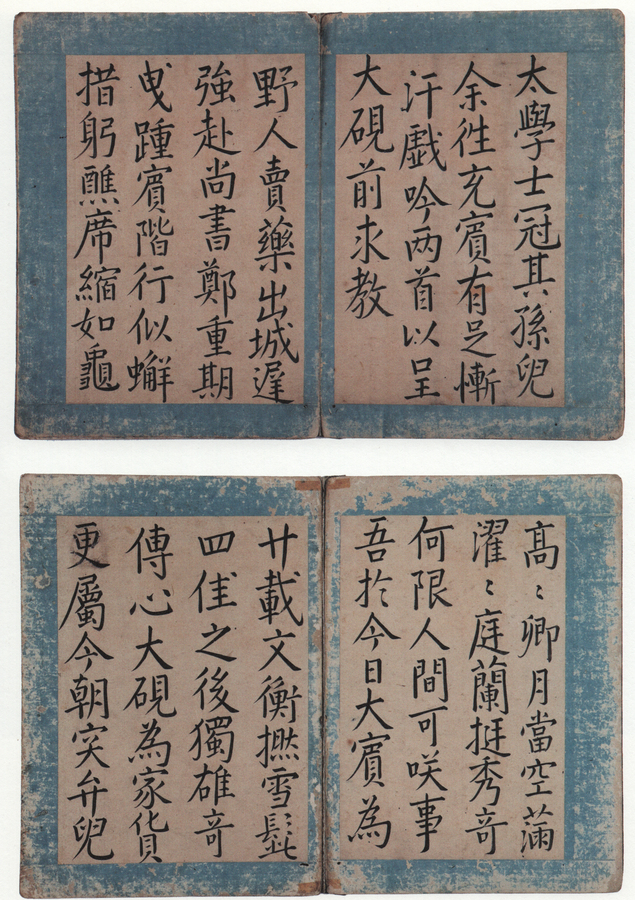 太學士冠其孫兒
余徃充賓有足慚
汗戯吟两首以呈
大硯前求教
野人賣藥出城遲
強赴尚書鄭重期
曵踵賓階行似蠏
措躬醮席縮如龜
高〻卿月當空滿
濯〻庭蘭挺秀竒
何限人間可咲事
吾於今日大賓為
廿載文衡撚雪髭
四佳之後獨雄竒
傳心大硯為家貨
更屬今朝突弁兒